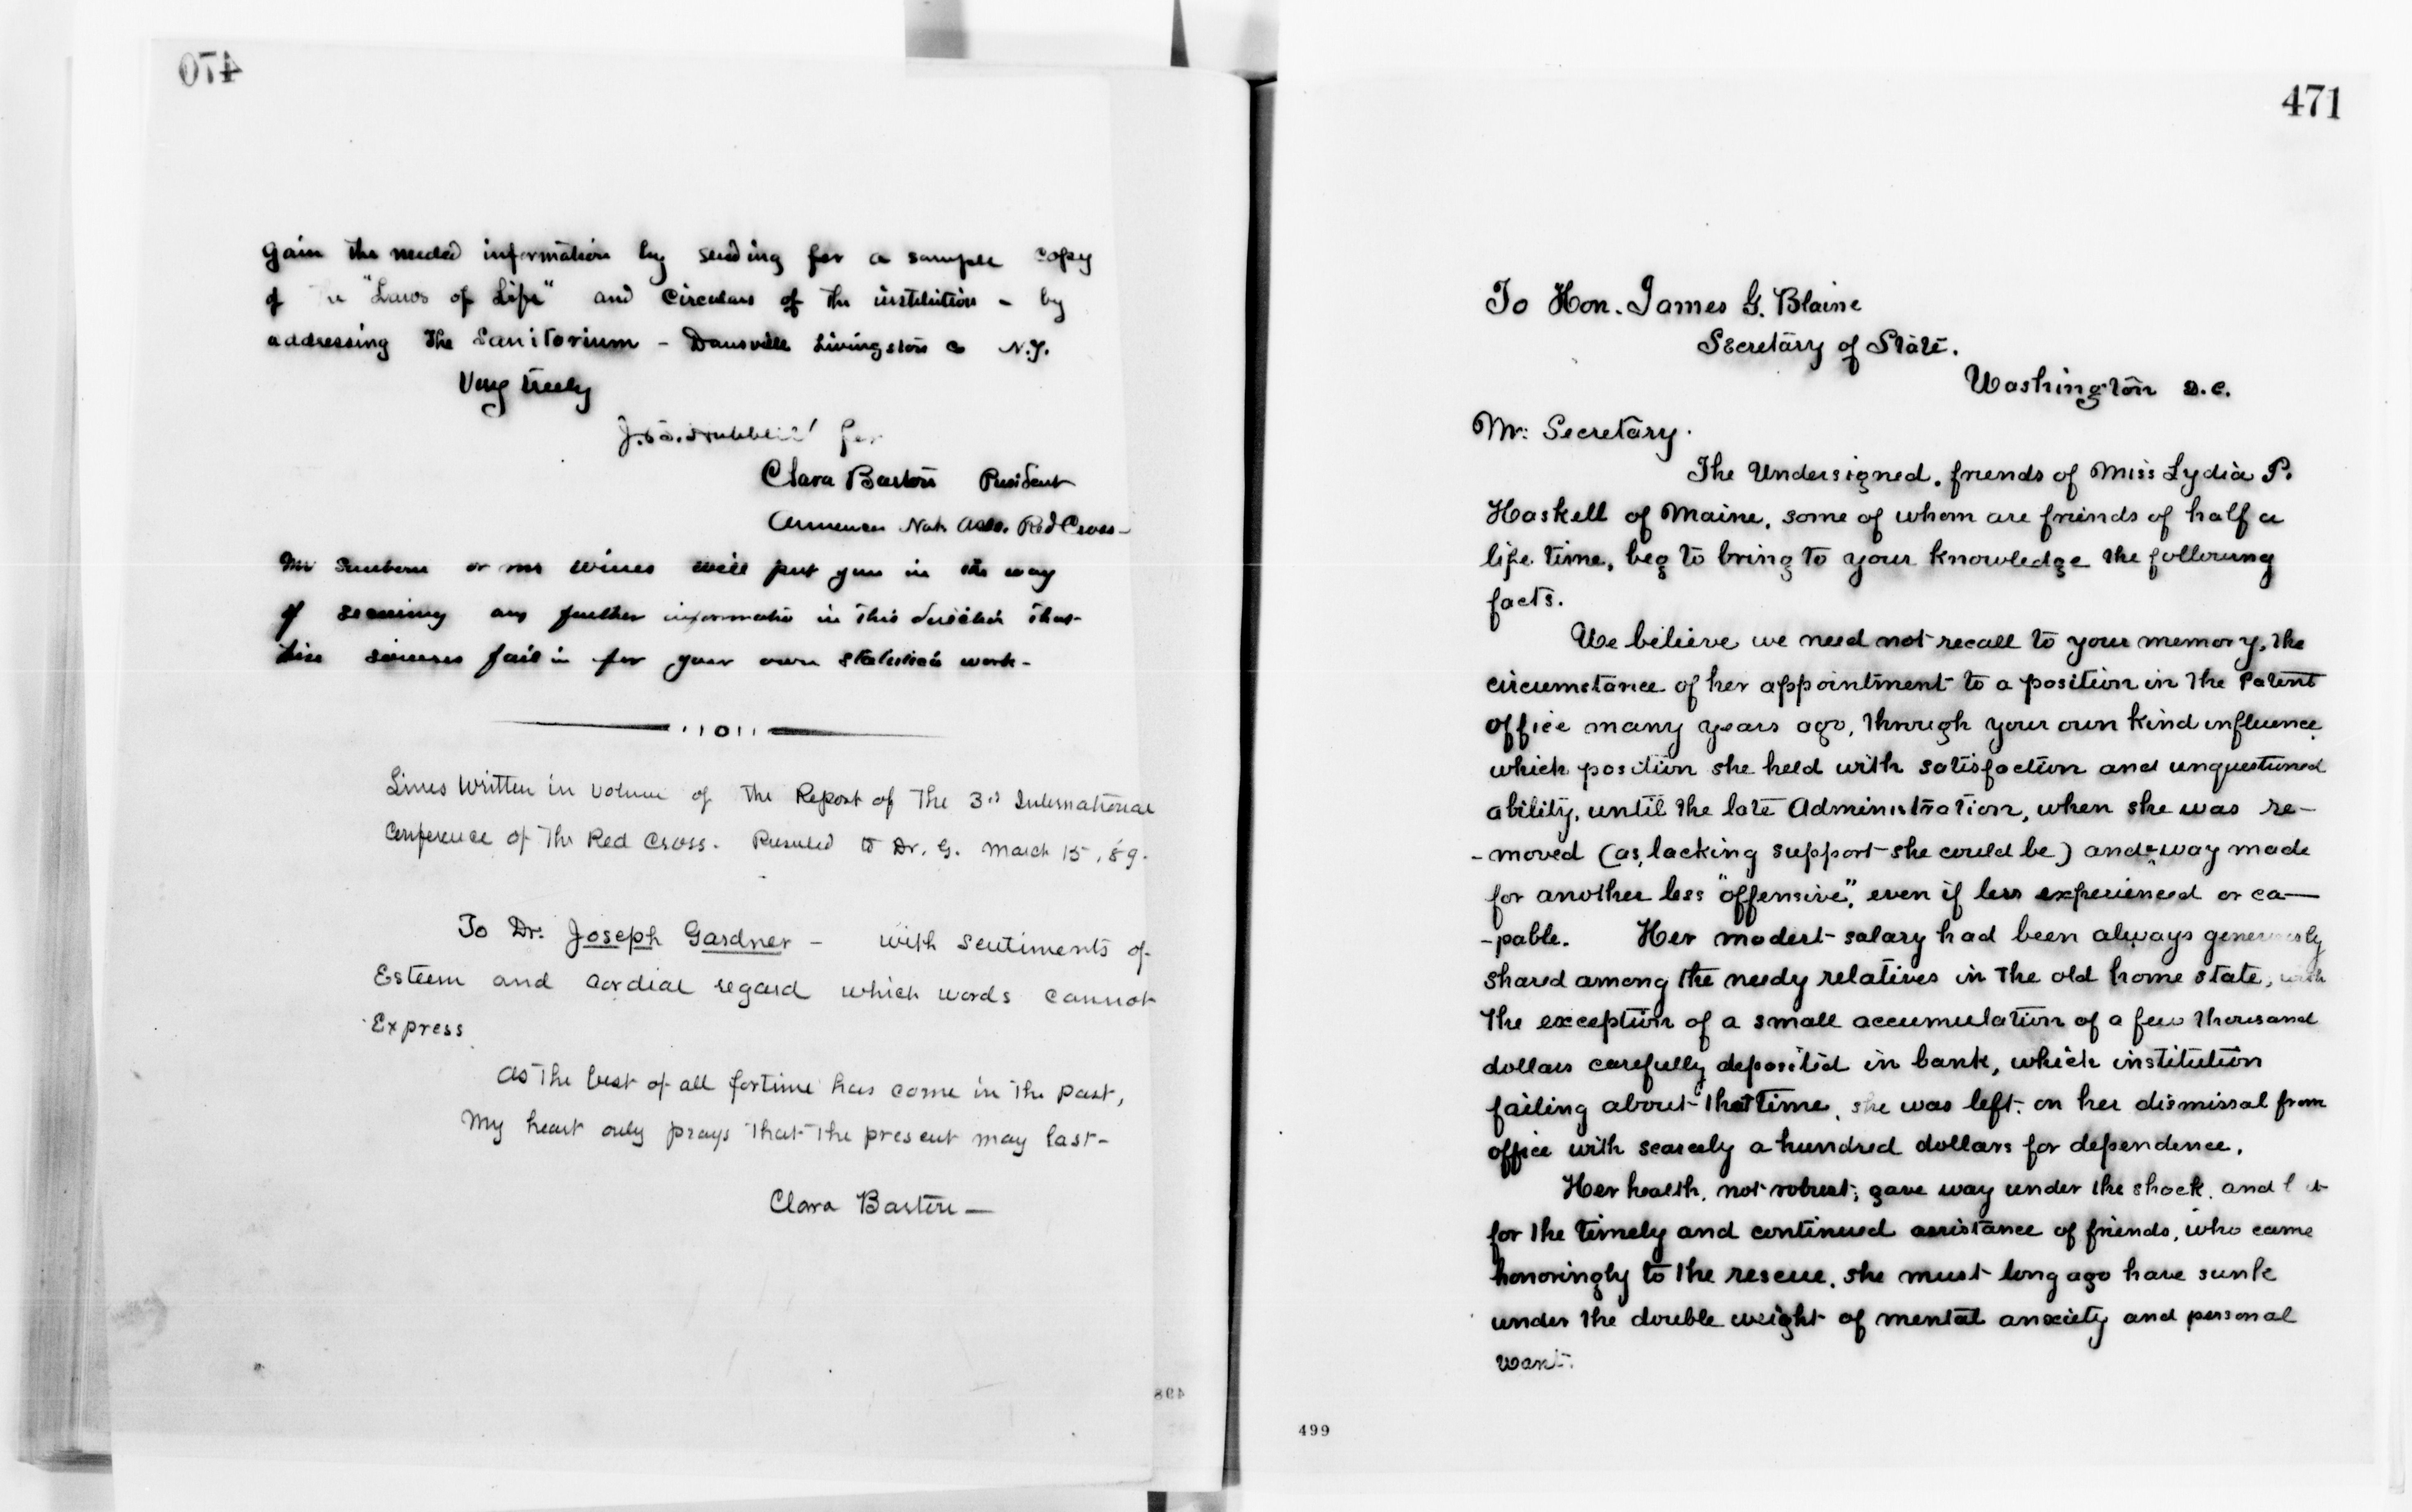 470
gain the needed information by sending for a sample copy
of the "Laws of Life" and Circulars of the institution - by
addressing The Sanitorium - Dansville Livingston Co N.Y.
Very truly
J.B. Hubbell for
Clara Barton President
American Nat. Asso. Red Cross -
Mr Sanborn or Mr Wines will put you in the way
of securing any further information in this direction that
sources fail in for your own statistical work -
Lines Written in volume of The Report of The 3rd International
Conference of The Red Cross. Presented to Dr. G. March 15, 89.
To Dr. Joseph Gardner - with sentiments of
Esteem and cordial regard which words cannot
Express
As the best of all fortime has come in the past,
My heart only prays that the present may last -
Clara Barton -
498
471
To Hon. James G. Blaine
Secretary of State.
Washington D.C.
Mr. Secretary.
The Undersigned, friends of Miss Lydia P.
Haskell of Maine, some of whom are friends of half a
life time, beg to bring to your knowledge the following
facts.
We believe we need not recall to your memory, the
circumstance of her appointment to a position in the Patent
office many years ago, through your own kind influence
which position she held with satisfaction and unquestioned
ability, until the late Administration, when she was re-
-moved (as, lacking support she could be) and a way made
for another less "offensive", even if less experienced or ca-
-pable. Her modest salary had been always generously
shared among the needy relatives in the old home state, with
the exception of a small accumulation of a few thousand
dollars carefully deposited in bank, which institution
failing about that time, she was left, on her dismissal from
office with scarcely a hundred dollars for dependence.
Her health, not robust, gave way under the shock, and but
for the timely and continued assistance of friends, who came
honoringly to the rescue, she must long ago have sunk
under the double weight of mental anxiety and personal
want.
499